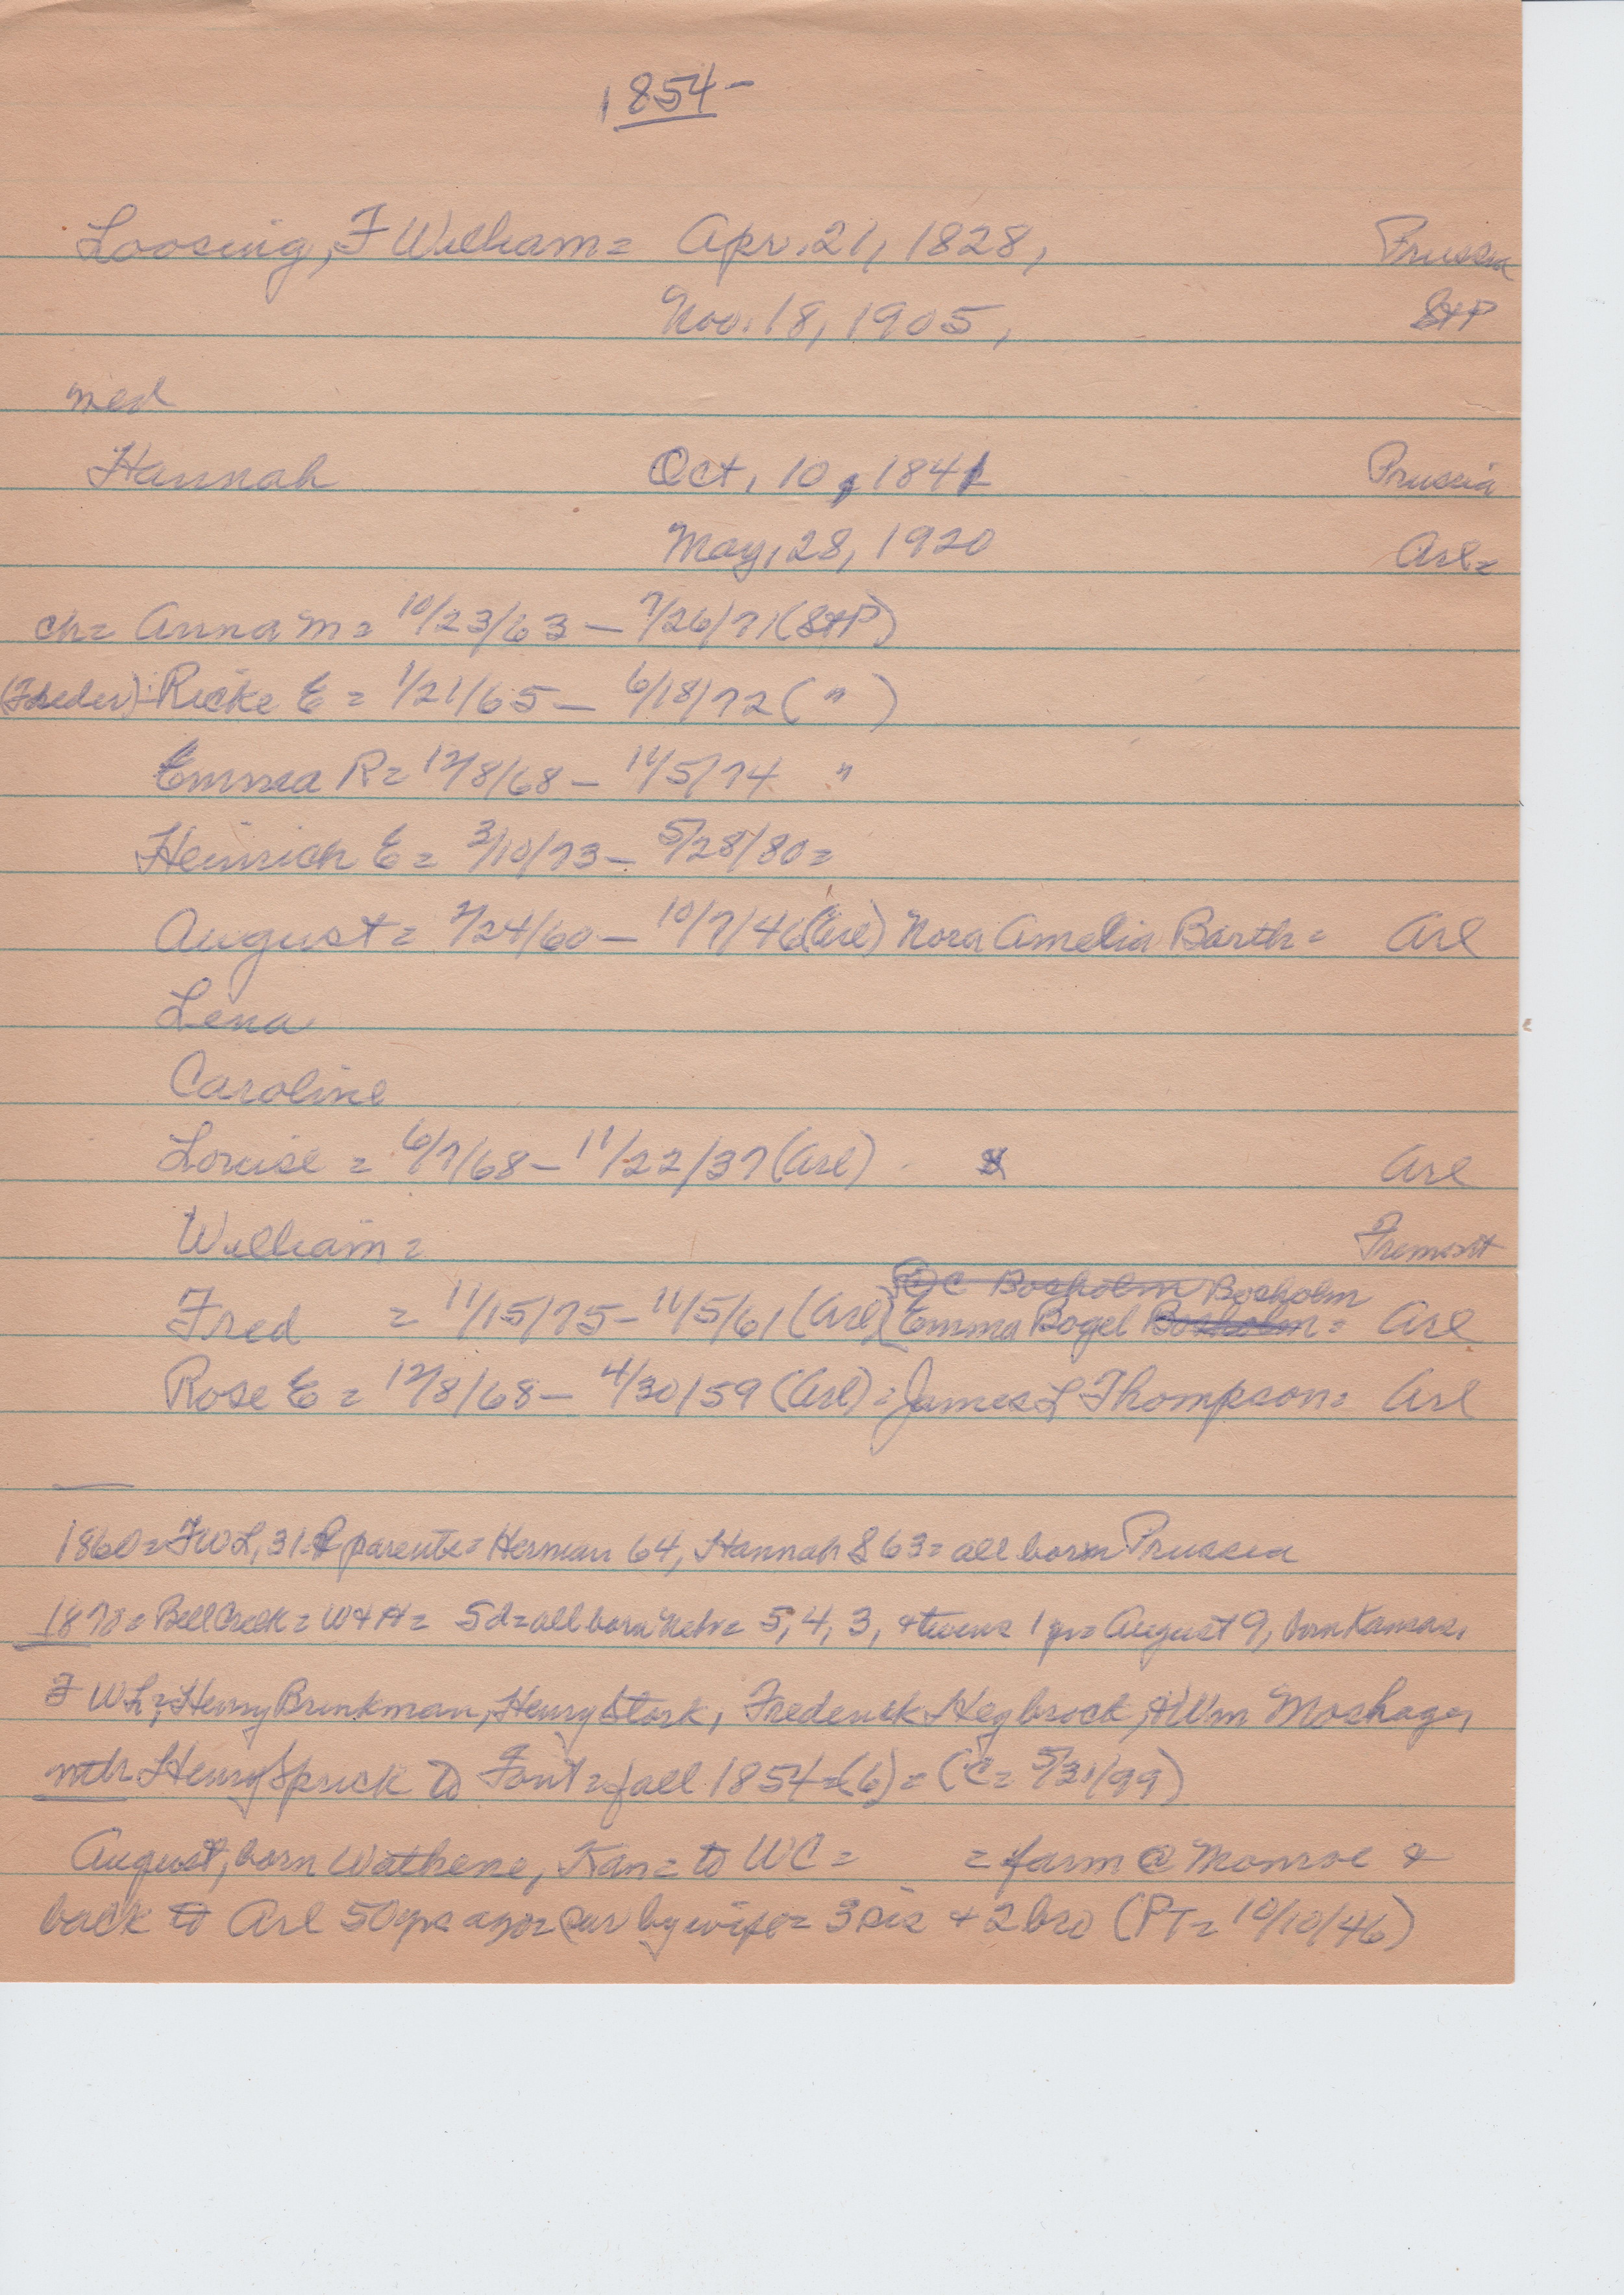 1854-
Loosing, F William = Apr. 21, 1828, Prussia
Nov. 18, 1905, StP
med
Hannah Oct, 10, 1841 Prussia
May, 28, 1920 Arl =
ch = Anna M = 10/23/63 - 7/26/71 (StP)
(Freder) - Ricke E = 1/21/65 - 6/18/72 ( " )
Emma R = 12/8/68 - 11/5/74 "
Heinrich E = 3/10/73 - 5/28/80 =
August = 2/24/60 - 10/7/46 (Arl) Nora Amelia Barth = Arl
Lena
Caroline
Louise = 6/7/68 - 11/22/37 (Arl) Arl
William = Fremont
C Bosholm Bosholm
Fred = 11/15/75 - 11/5/61 (Arl) (Emma Bogel Bosholm = Arl
Rose E = 12/8/68 - 4/30/59 (Arl) = James L Thompson = Arl
1860 = FWL, 31 parents = Herman 64, Hannah S 63 = all born Prussia
1870 = Bell Creek = W + H = 5d = all born Nebr = 5, 4, 3, + twins 1 yr = August 9, born Kansas,
F WL, Henry Brinkman, Henry Stork, Frederick Hegbrock, + Wm Moshage,
with Henry Sprick to Font = fall 1854 = (6) = (C = 5/31/99)
August, born Wathene, Kan = to WC = = farm @ Monroe +
back to Arl 50 yrs ago = sur by wife = 3 sis + 2 bro (PT = 10/10/46)